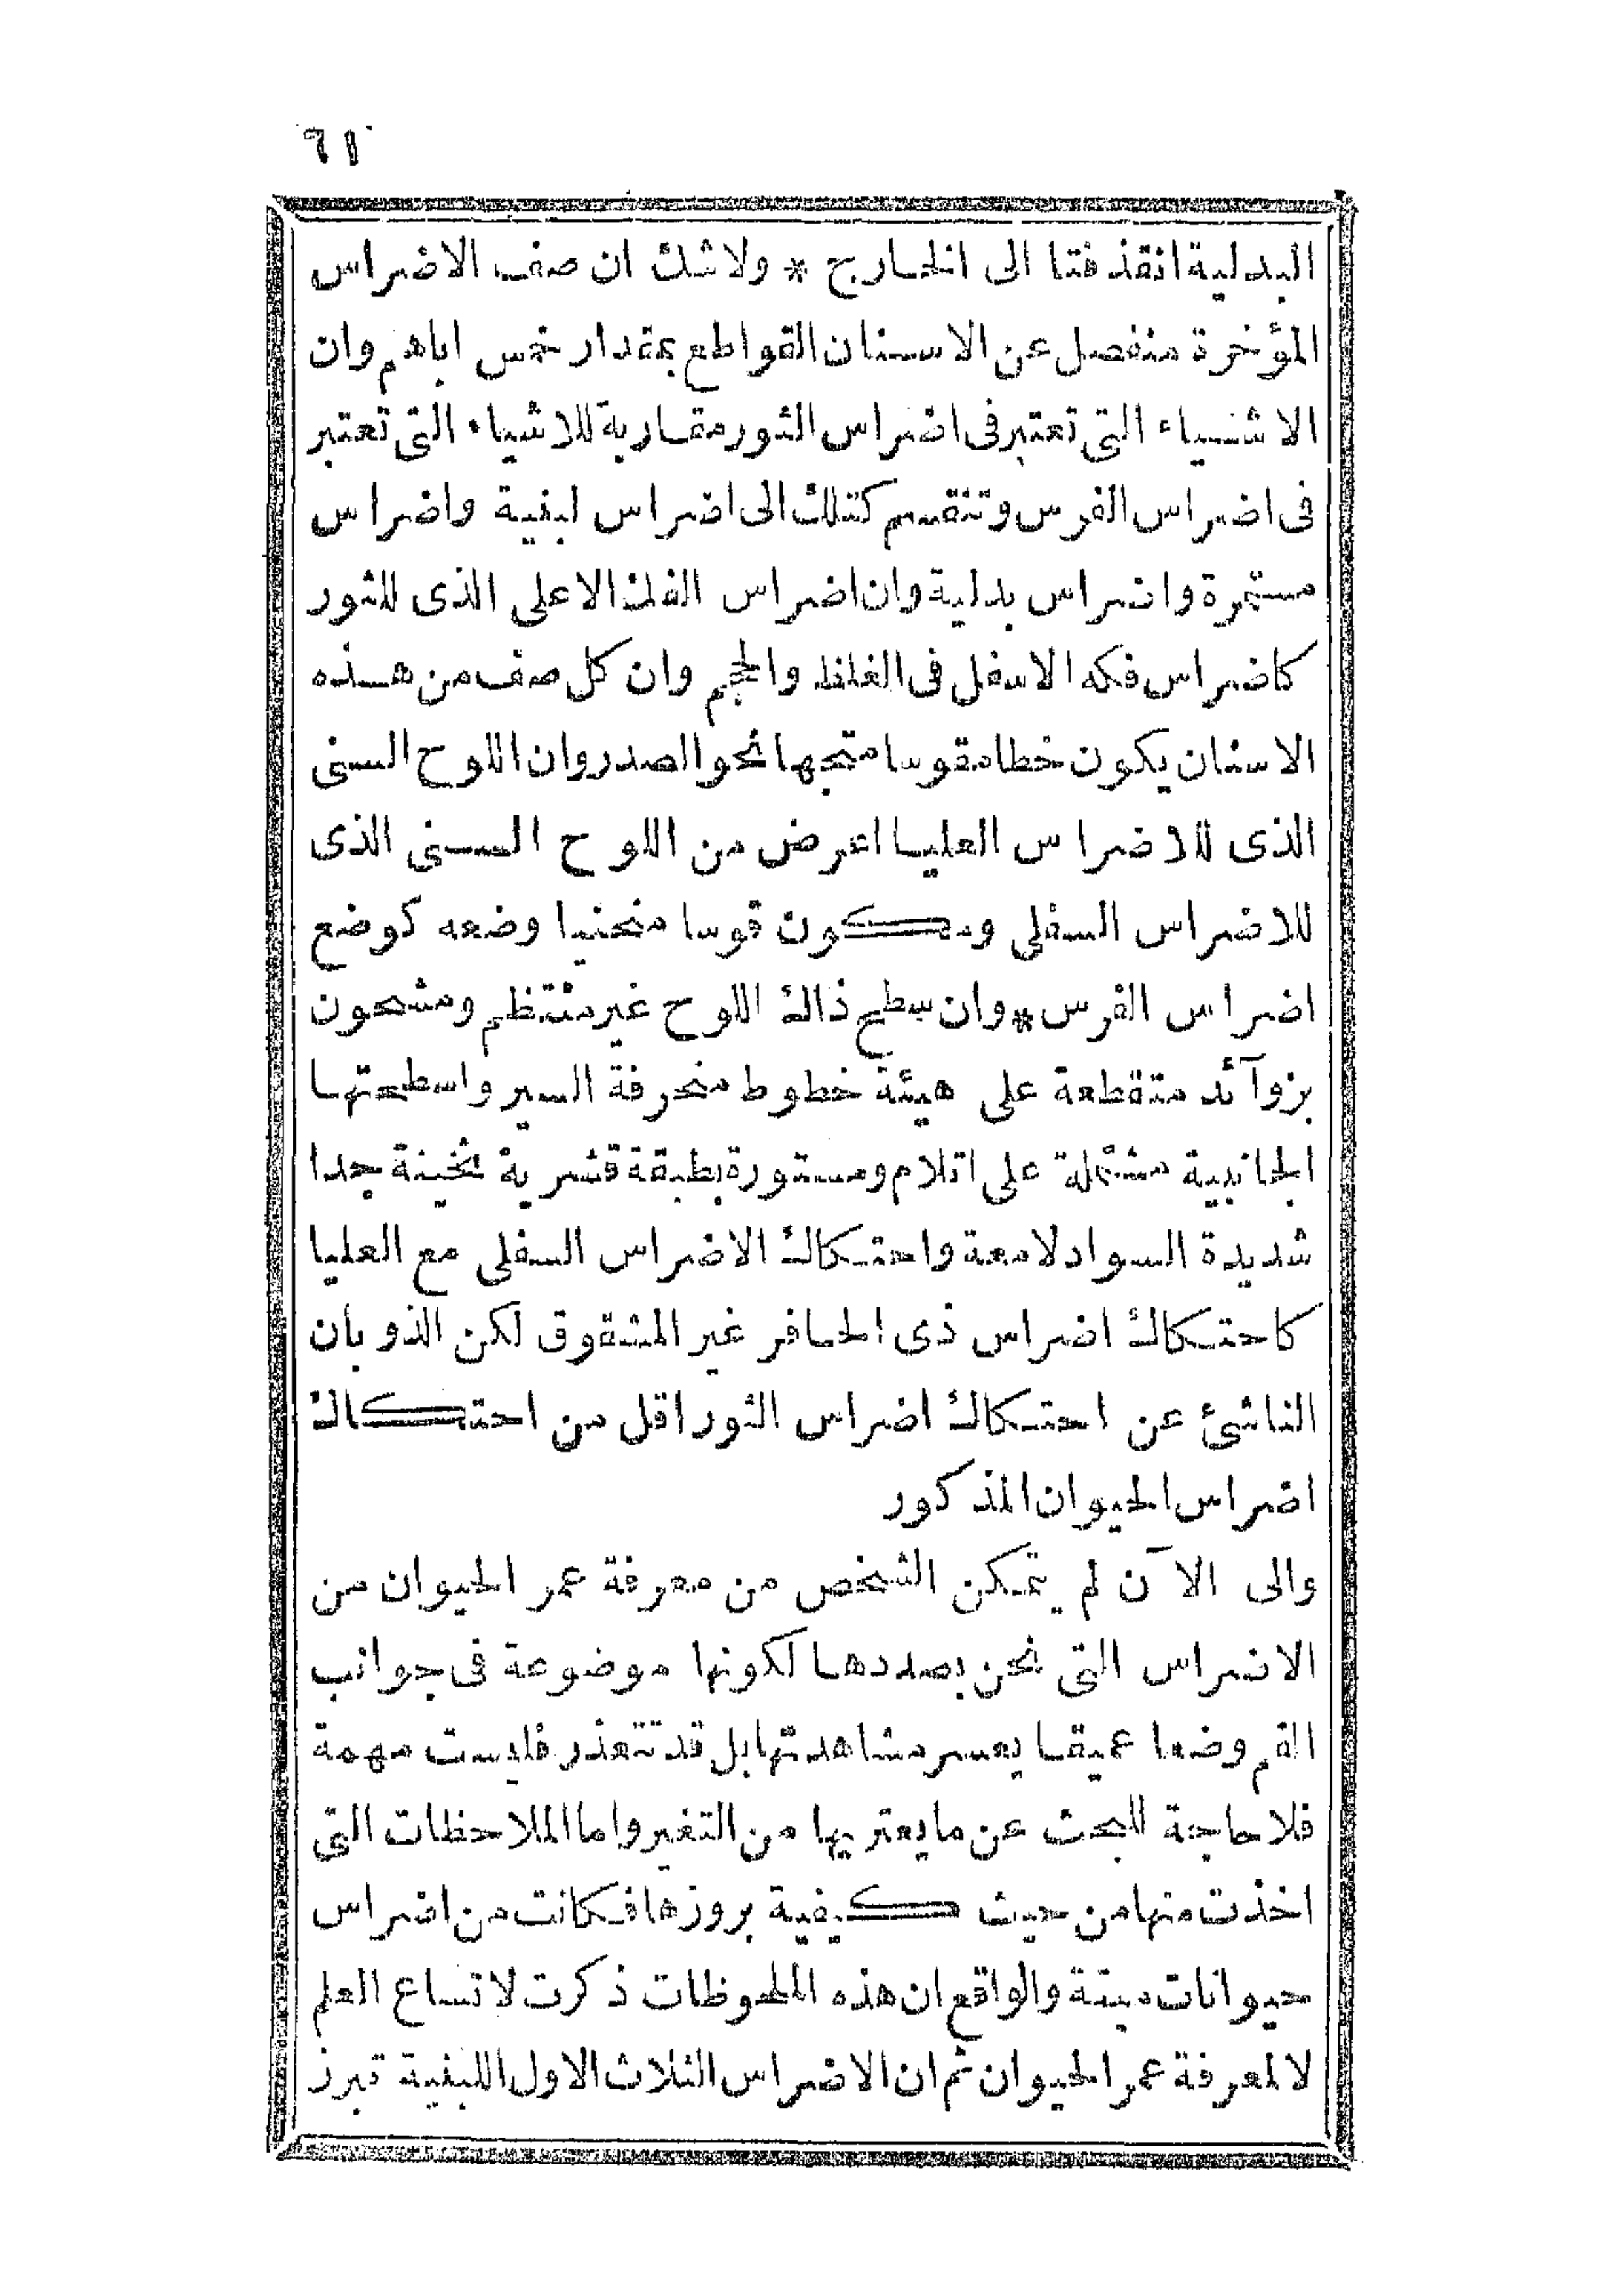 ٦١
البدلية انقذفتا الى الخارج * ولاشك ان صف الاضراس
المؤخرة منفصل عن الاسنان القواطع بمقدار خمس اباهم وان
الاشياء التى تعتبر فى اضراس الثور مقاربة للاشياء التى تعتبر
فى اضراس الفرس وتنقسم كتلك الى اضراس لبنية واضراس
مستمرة واضراس بدلية وان اضراس الفك الاعلى الذى للثور
كاضراس فكه الاسفل فى الغلظ والحجم وان كل صف من هذه
الاسنان يكون خطا مقوسا متجها نحو الصدر وان اللوح السنى
الذى للاضراس العليا اعرض من اللوح السنى الذى
للاضراس السفلى ويكون قوسا منحنيا وضعه كوضع
اضراس الفرس * وان سطح ذالك اللوح غير منتظم ومشحون
بزوآئد متقطعة على هيئة خطوط منحرفة السير واسطحتها
الجانبية مشتملة على اتلام ومستورة بطبقة قشرية ثخينة جدا
شديدة السواد لامعة واحتكاك الاضراس السفلى مع العليا
كاحتكاك اضراس ذى الحافر غير المشقوق لكن الذوبان
الناشئ عن احتكاك اضراس الثور اقل من احتكاك
اضراس الحيوان المذكور
والى الآن لم يتمكن الشخص من معرفة عمر الحيوان من
الاضراس التى نحن بصددها لكونها موضوعة فى جوانب
الفم وضعا عميقا يعسر مشاهدتها بل قد تتعذر فليست مهمة
فلا حاجة للبحث عن ما يعتريها من التغير واما الملاحظات التى
اخذت منها من حيث كيفية بروزها فكانت من اضراس
حيوانات ميتة والواقع ان هذه الملحوظات ذكرت لاتساع العلم
لا لمعرفة عمر الحيوان ثم ان الاضراس الثلاث الاول اللبنية تبرز